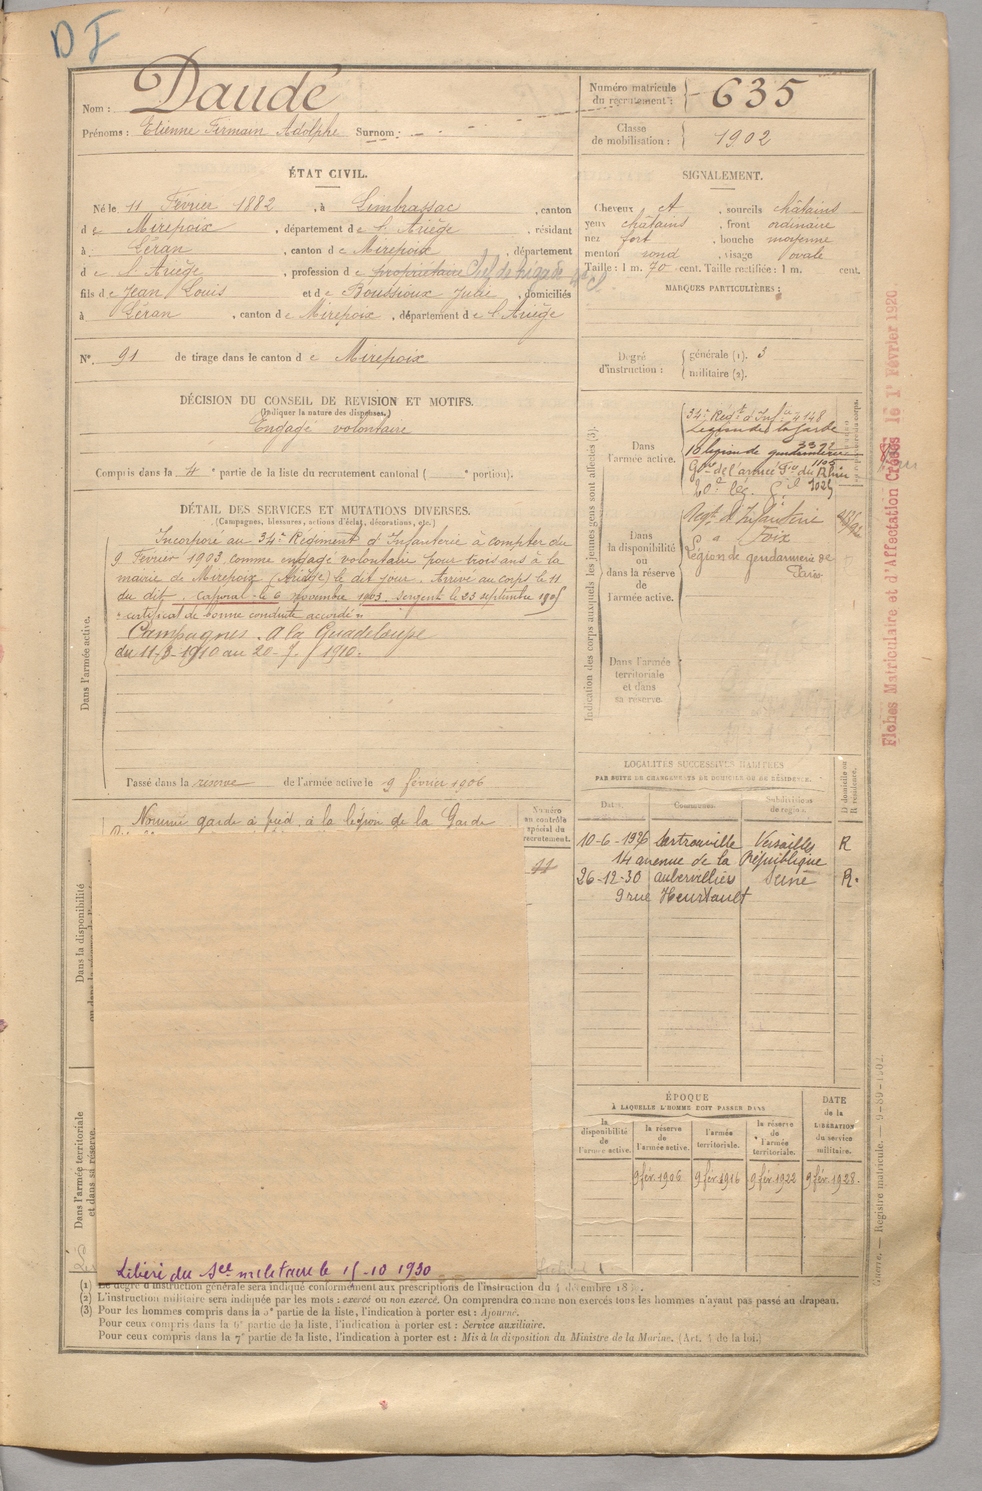 DF
Nom : Daudé
Prénoms : Etienne Firmain Adolphe Surnom :
Numéro matricule du recrutement : 635
Classe de mobilisation : 1902
ÉTAT CIVIL.
Né le 11 Février 1882, à Limbrassac, canton
de Mirepoix, département de l'Ariège, résidant
à Léran, canton de Mirepoix, département
de l'Ariège, profession de propriétaire Chef de brigade 4e Cl
fils de Jean Louis et de Boussioux Julie, domiciliés
à Léran, canton de Mirepoix, département de l'Ariège
N° 91 de tirage dans le canton de Mirepoix
SIGNALEMENT.
Cheveux et, sourcils châtains
yeux châtains, front ordinaire
nez fort, bouche moyenne
menton rond, visage ovale
Taille : 1 m. 70 cent. Taille rectifiée : 1 m. cent.
MARQUES PARTICULIÈRES :
Degré d'instruction : générale (1). 3
militaire (2).
DÉCISION DU CONSEIL DE REVISION ET MOTIFS.
(Indiquer la nature des dispenses.)
Engagé volontaire
Compris dans la 4e partie de la liste du recrutement cantonal ( e portion).
DÉTAIL DES SERVICES ET MUTATIONS DIVERSES.
(Campagnes, blessures, actions d'éclat, décorations, etc.)
Dans l'armée active.
Incorporé au 34e Régiment d'Infanterie à compter du
9 Février 1903 comme engagé volontaire pour trois ans à la
mairie de Mirepoix (Ariège) le dit jour. Arrivé au corps le 11
du dit. Caporal le 6 novembre 1903. Sergent le 23 septembre 1905
"certificat de bonne conduite accordé".
Campagnes. A la Guadeloupe
du 11-3-1910 au 20-9-1910.
Passé dans la reserve de l'armée active le 9 février 1906
Indication des corps auxquels les jeunes gens sont affectés (3).
Dans l'armée active.
34e Régt d'Infie 4148
Légion de la Garde
16 légion de gendarmerie 3322
Gie de l'armée du Rhin 1105
20e leg. 1025
Dans la disponibilité ou dans la réserve de l'armée active.
Régt d'Infanterie
à Foix
Légion de gendarmerie de
Paris
Dans l'armée territoriale et dans sa réserve.
Fiches Matriculaire et d'Affectation Créées le 1er Février 1920.
LOCALITÉS SUCCESSIVES HABITÉES
PAR SUITE DE CHANGEMENTS DE DOMICILE OU DE RÉSIDENCE.
Dates. Communes. Subdivisions de région. D domicile ou R résidence.
10-6-1926 Sartrouville Versailles R
14 avenue de la République
26-12-30 Aubervilliers Seine R.
9 rue Heurtault
Nommé garde à pied, à la légion de la Garde
Numéro au contrôle spécial du recrutement.
Dans la disponibilité
Dans l'armée territoriale et dans sa réserve.
ÉPOQUE
À LAQUELLE L'HOMME DOIT PASSER DANS
la disponibilité de l'armée active. la réserve de l'armée active. l'armée territoriale. la réserve de l'armée territoriale. DATE de la LIBÉRATION du service militaire.
9 fév. 1906 9 fév. 1916 9 fév. 1922 9 fév. 1928.
Libéré du Sce militaire le 15-10 1930
(1) Le degré d'instruction générale sera indiqué conformément aux prescriptions de l'instruction du 4 décembre
(2) L'instruction militaire sera indiquée par les mots : exercé ou non exercé. On comprendra comme non exercés tous les hommes n'ayant pas passé au drapeau.
(3) Pour les hommes compris dans la 5e partie de la liste, l'indication à porter est : Ajourné.
Pour ceux compris dans la 6e partie de la liste, l'indication à porter est : Service auxiliaire.
Pour ceux compris dans la 7e partie de la liste, l'indication à porter est : Mis à la disposition du Ministre de la Marine. (Art. 4 de la loi.)
Guerre. — Registre matricule. — 9-89-1902.